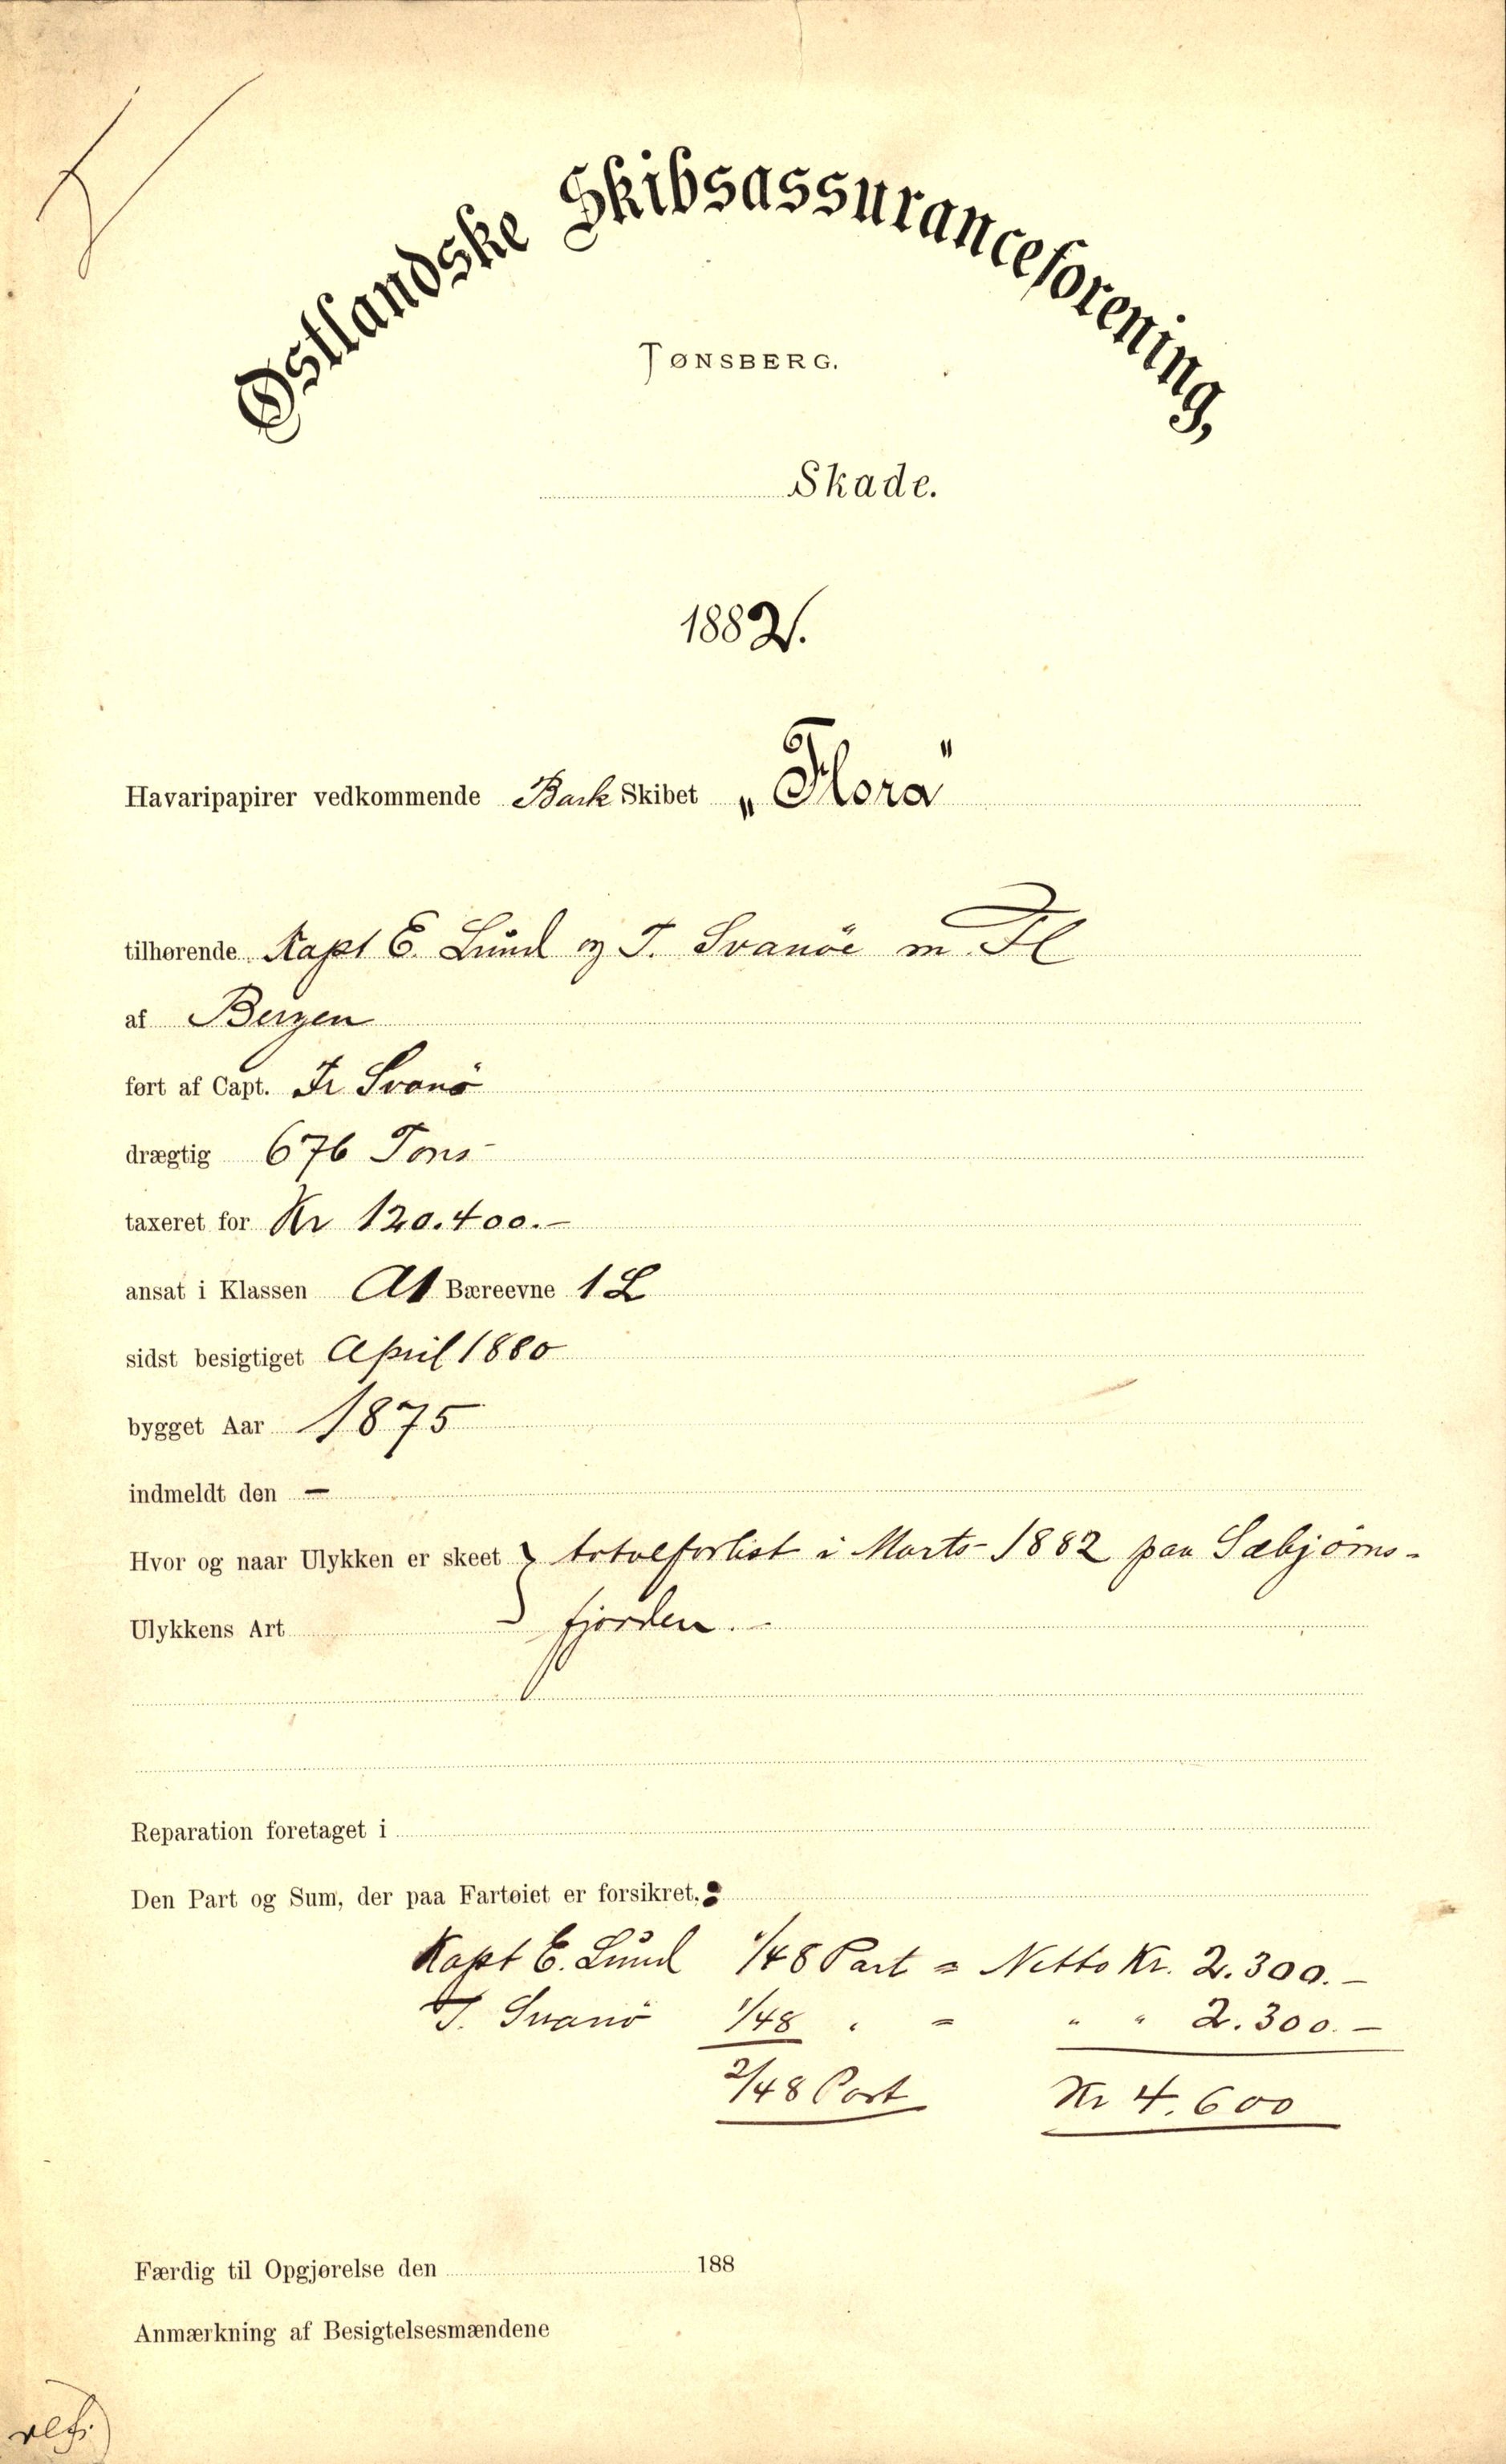 Østlandske Skibsassuranceforening,
TØNSBERG.
Skade.
1882.
Havaripapirer vedkommende Bark Skibet „Flora"
tilhørende Kapt E. Lund og T. Svanöe m. Fl
af Bergen
ført af Capt. Fr Svanö
drægtig 676 Tons
taxeret for Kr 120.400.-
ansat i Klassen A1 Bæreevne 1 L
sidst besigtiget April 1880
bygget Aar 1875
indmeldt den —
Hvor og naar Ulykken er skeet } totalforlist i Marts 1882 paa Sæbjørns-
Ulykkens Art fjorden.-
Reparation foretaget i
Den Part og Sum, der paa Fartøiet er forsikret.:
Kapt E. Lund 1/48 Part = Netto Kr. 2.300.-
T. Svanö 1/48 " = " " 2.300.-
2/48 Part Kr 4.600
Færdig til Opgjørelse den 188
Anmærkning af Besigtelsesmændene